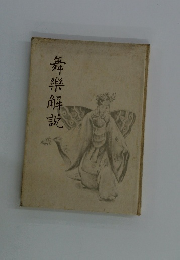 舞樂解説